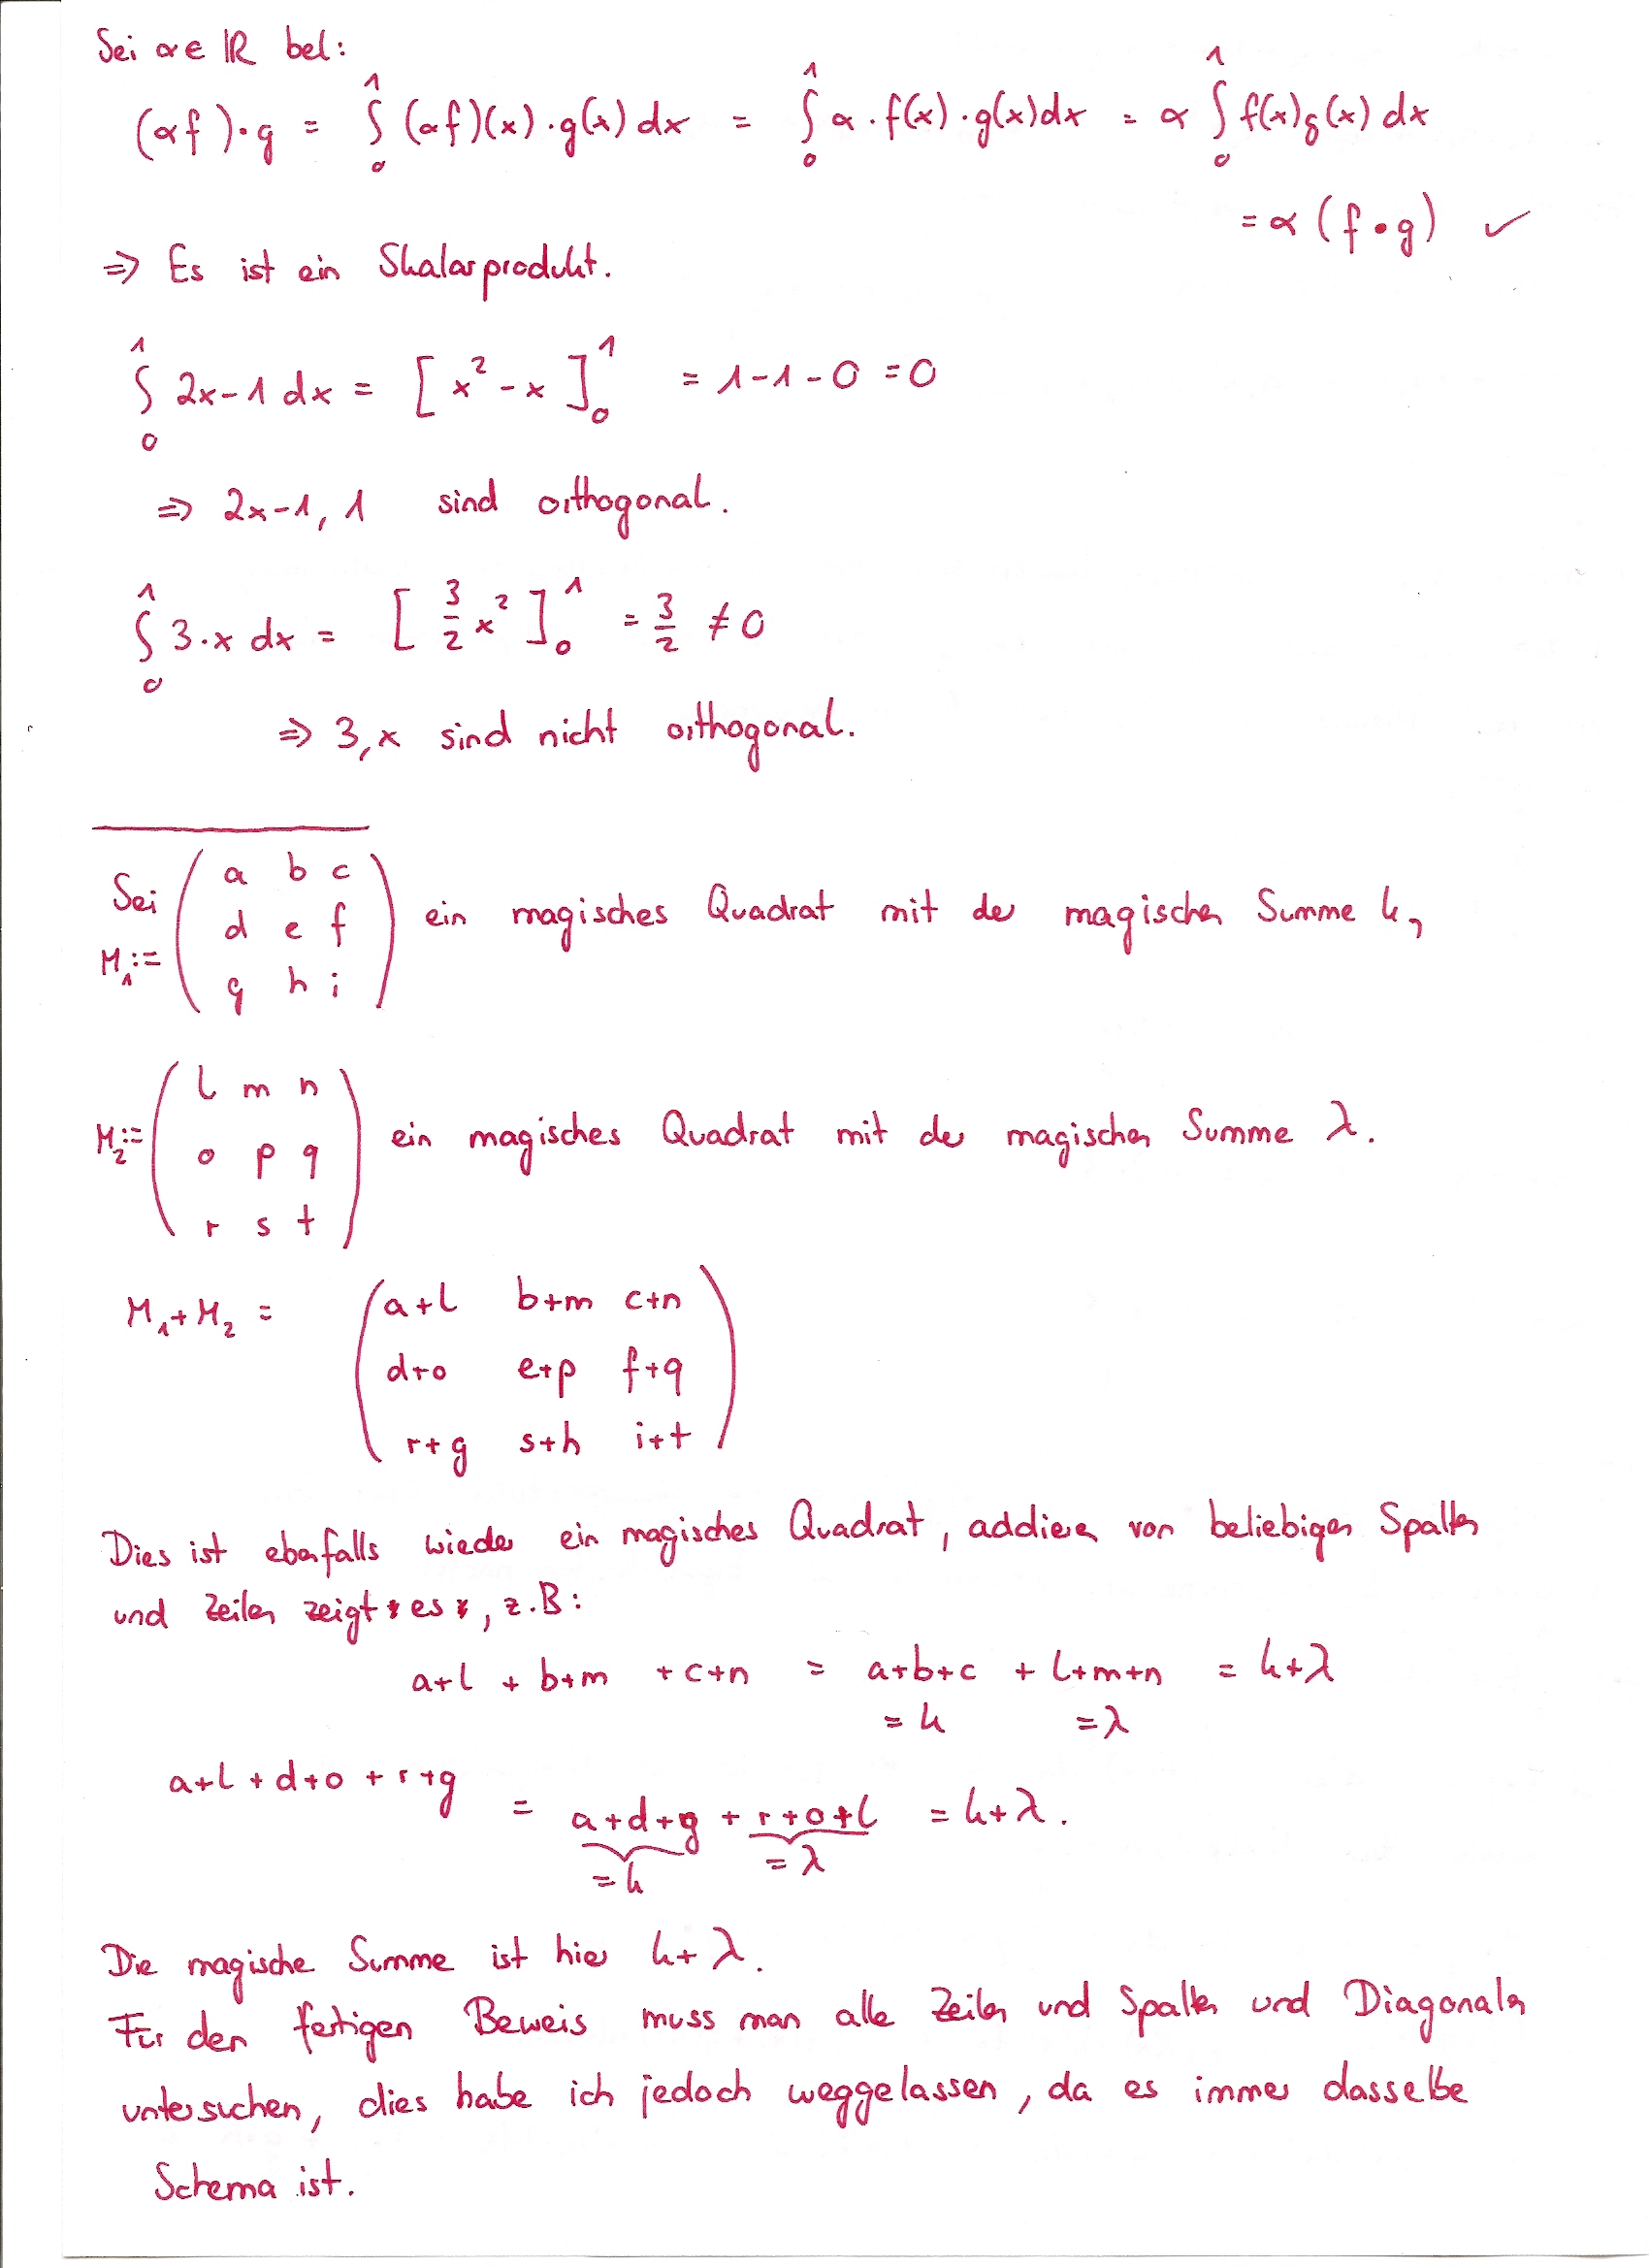 Sei α ∈ ℝ bel:
(αf)·g = ∫₀¹ (αf)(x)·g(x) dx = ∫₀¹ α·f(x)·g(x)dx = α ∫₀¹ f(x)g(x) dx
= α (f•g) ✓
⇒ Es ist ein Skalarprodukt.
∫₀¹ 2x-1 dx = [x²-x]₀¹ = 1-1-0 = 0
⇒ 2x-1, 1 sind orthogonal.
∫₀¹ 3·x dx = [3/2 x²]₀¹ = 3/2 ≠ 0
⇒ 3, x sind nicht orthogonal.
Sei M₁:= ( a b c
d e f
g h i ) ein magisches Quadrat mit der magischen Summe k,
M₂:= ( l m n
o p q
r s t ) ein magisches Quadrat mit der magischen Summe λ.
M₁+M₂ = ( a+l b+m c+n
d+o e+p f+q
r+g s+h i+t )
Dies ist ebenfalls wieder ein magisches Quadrat, addieren von beliebigen Spalten
und Zeilen zeigt es, z.B:
a+l + b+m + c+n = a+b+c + l+m+n = k+λ
= k = λ
a+l + d+o + r+g = a+d+g + r+o+l = k+λ.
= k = λ
Die magische Summe ist hier k+λ.
Für den fertigen Beweis muss man alle Zeilen und Spalten und Diagonalen
untersuchen, dies habe ich jedoch weggelassen, da es immer dasselbe
Schema ist.